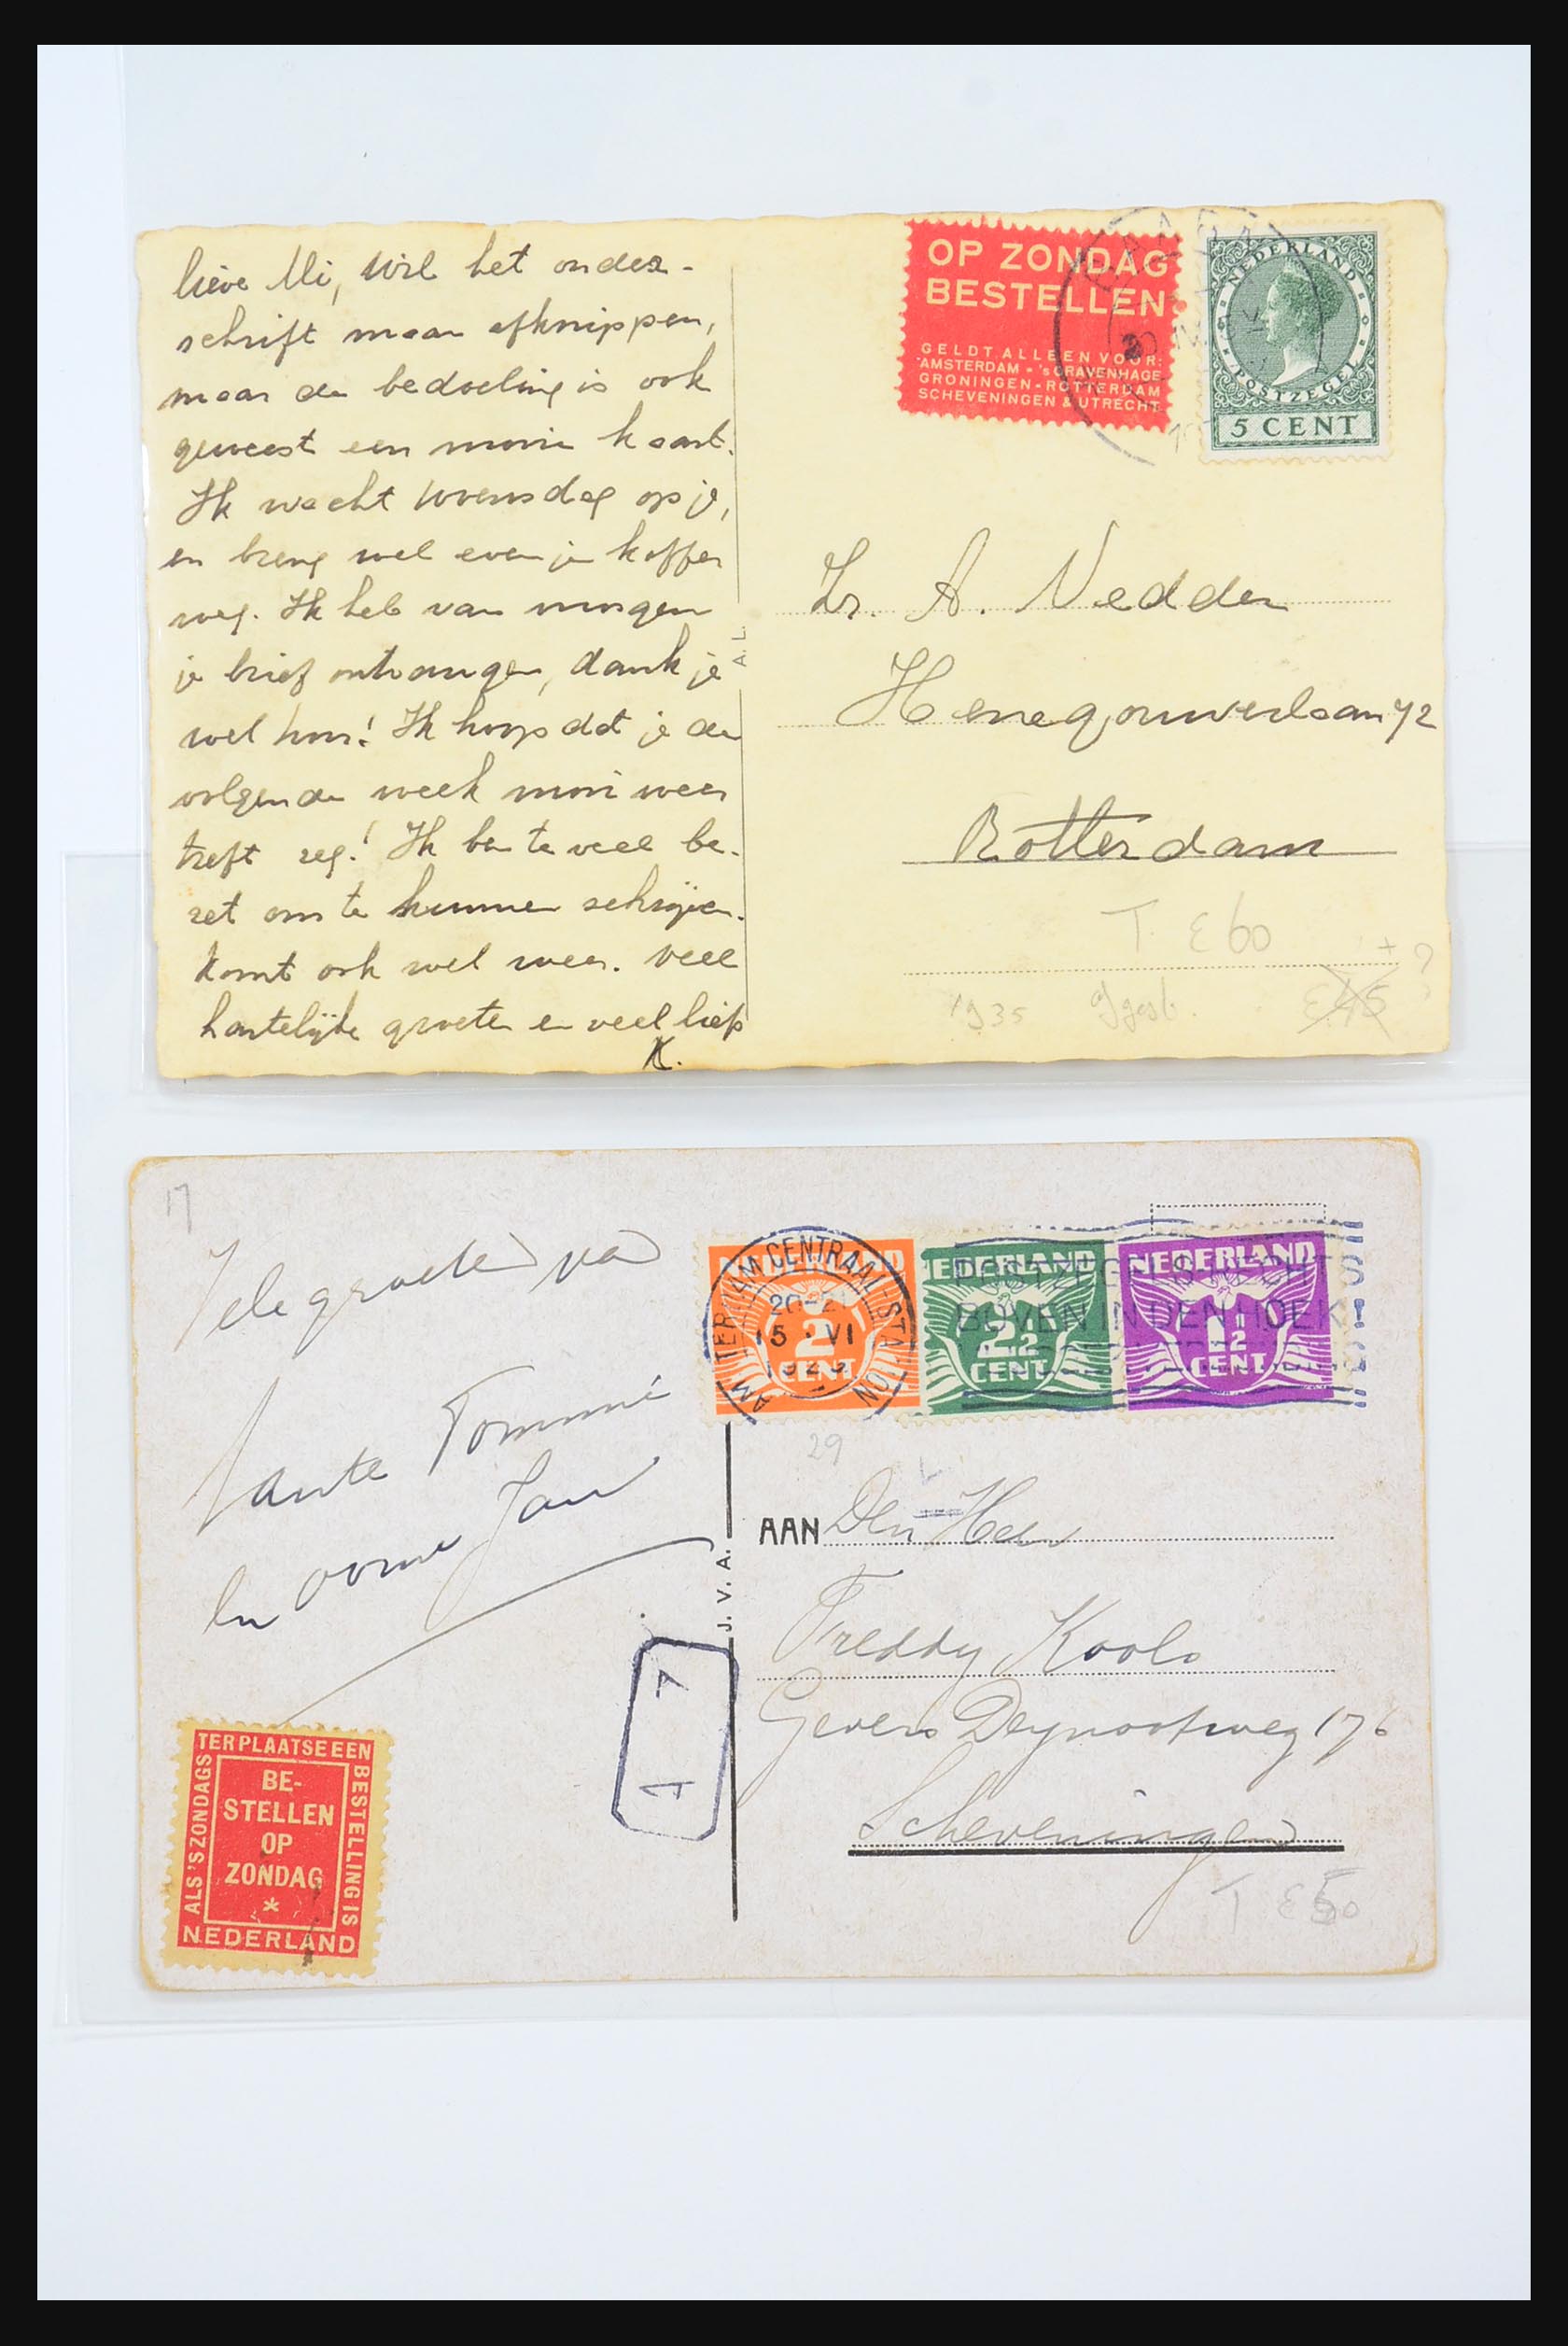 lieve Mi, Wil het onder-
schrift maar afknippen,
maar de bedoeling is ook
geweest een mooie kaart.
Ik wacht woensdag op je,
en breng wel even je koffer
weg. Ik heb van morgen
je brief ontvangen, dank je
wel hoor! Ik hoop dat je de
volgende week mooi weer
treft zeg! Ik ben te veel be-
zet om te kunnen schrijven.
Komt ook wel weer. Veel
hartelijke groeten en veel liefs
K.
A.L.
OP ZONDAG
BESTELLEN
GELDT ALLEEN VOOR:
AMSTERDAM - 's GRAVENHAGE
GRONINGEN - ROTTERDAM
SCHEVENINGEN & UTRECHT
NEDERLAND
POSTZEGEL
5 CENT
Zr. A. Nedden
Henegouwerlaan 72
Rotterdam
T. E 60
+ ?
1935 E 45
17
Vele groeten van
Tante Tommie
en oome Jan
NEDERLAND
2
CENT
NEDERLAND
2½
CENT
NEDERLAND
1½
CENT
AMSTERDAM CENTRAAL-STATION
20-21
15 · VI
BOVEN IN DEN HOEK
29
AAN Den Heer
Freddy Kools
Gevers Deynootweg 176
Scheveningen
T E 50
J. V. A.
17
TER PLAATSE EEN
BESTELLING IS
ALS 'S ZONDAGS
BE-
STELLEN
OP
ZONDAG
*
NEDERLAND